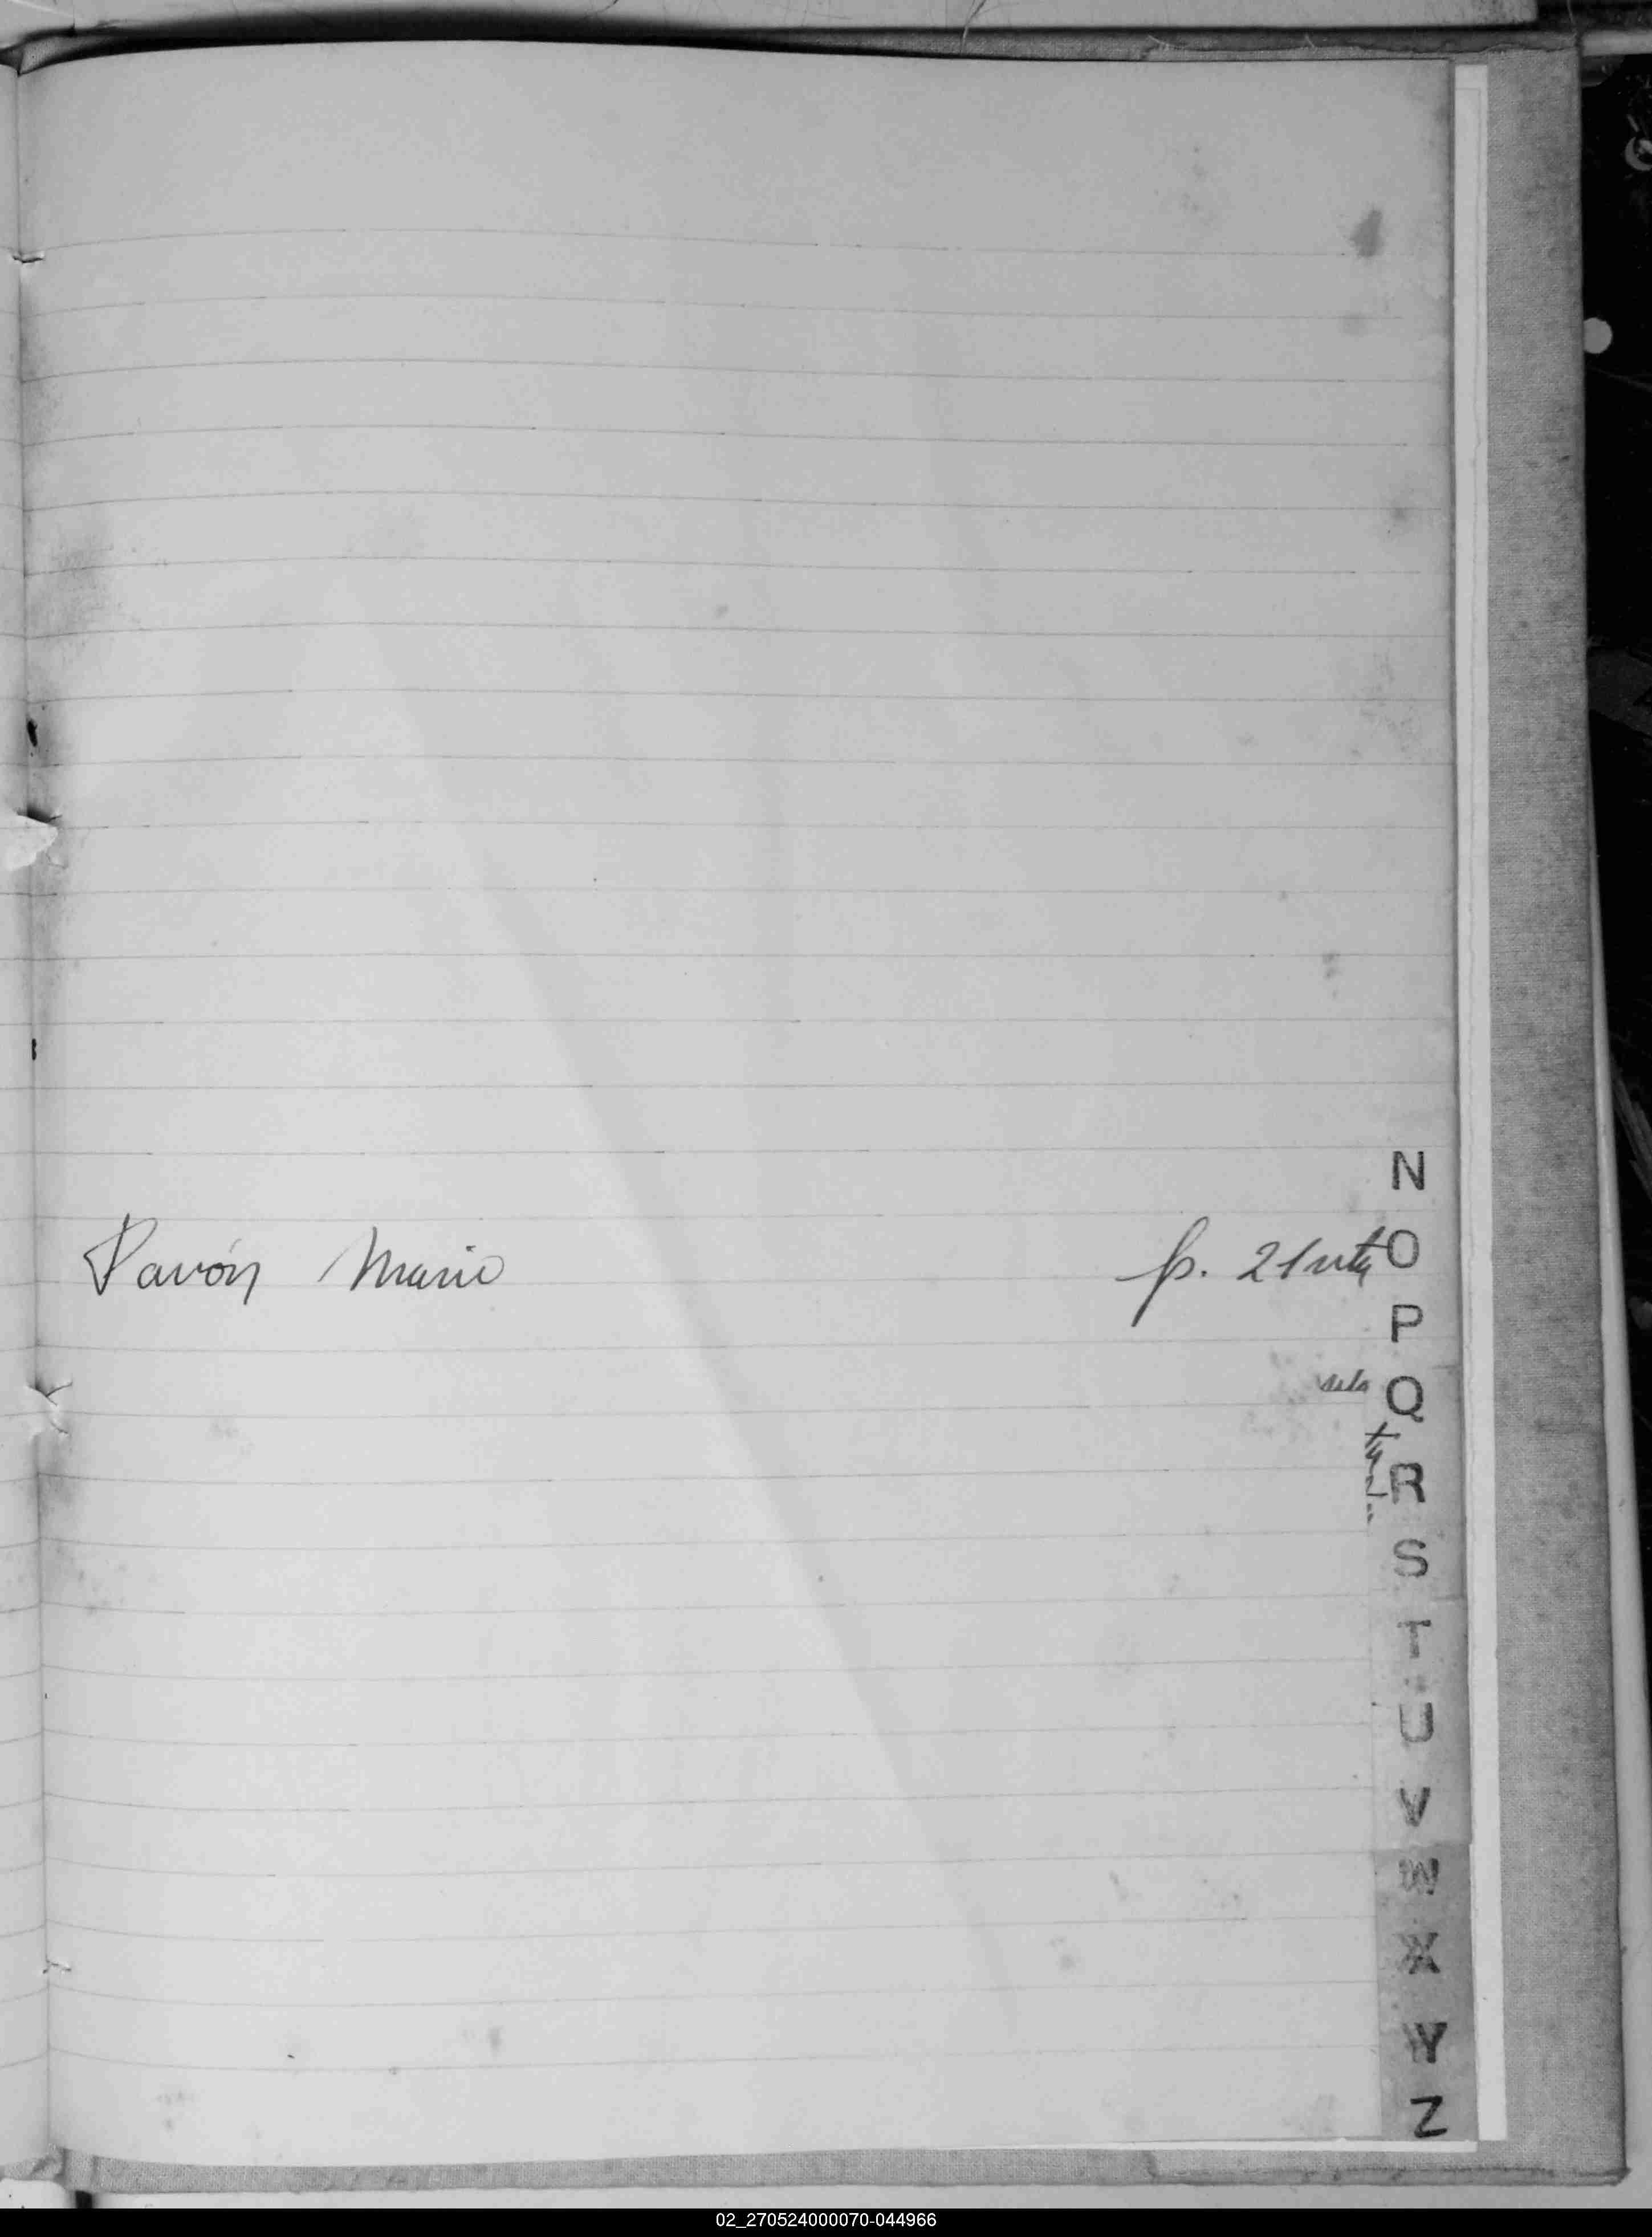 N
Pavón Mario fs. 21 vta O
P
Q
R
S
T
U
V
W
X
Y
Z
02_270524000070-044966